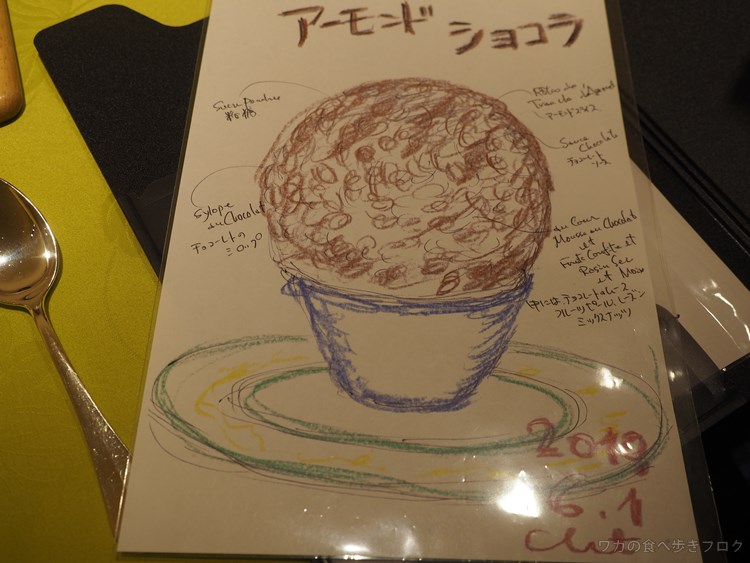 アーモンド
ショコラ
粉糖
アーモンドスライス
Sauce
Chocolat
チョコレート
ソース
Sylope
au Chocolat
チョコレートの
シロップ
au Coeur
Mousse au Chocolat
et
Fruit Confite et
Raisin Sec
et
中にはチョコレートムース
フルーツピール、レーズン
ミックスナッツ
2019
6.1
ワカの食べ歩きブログ